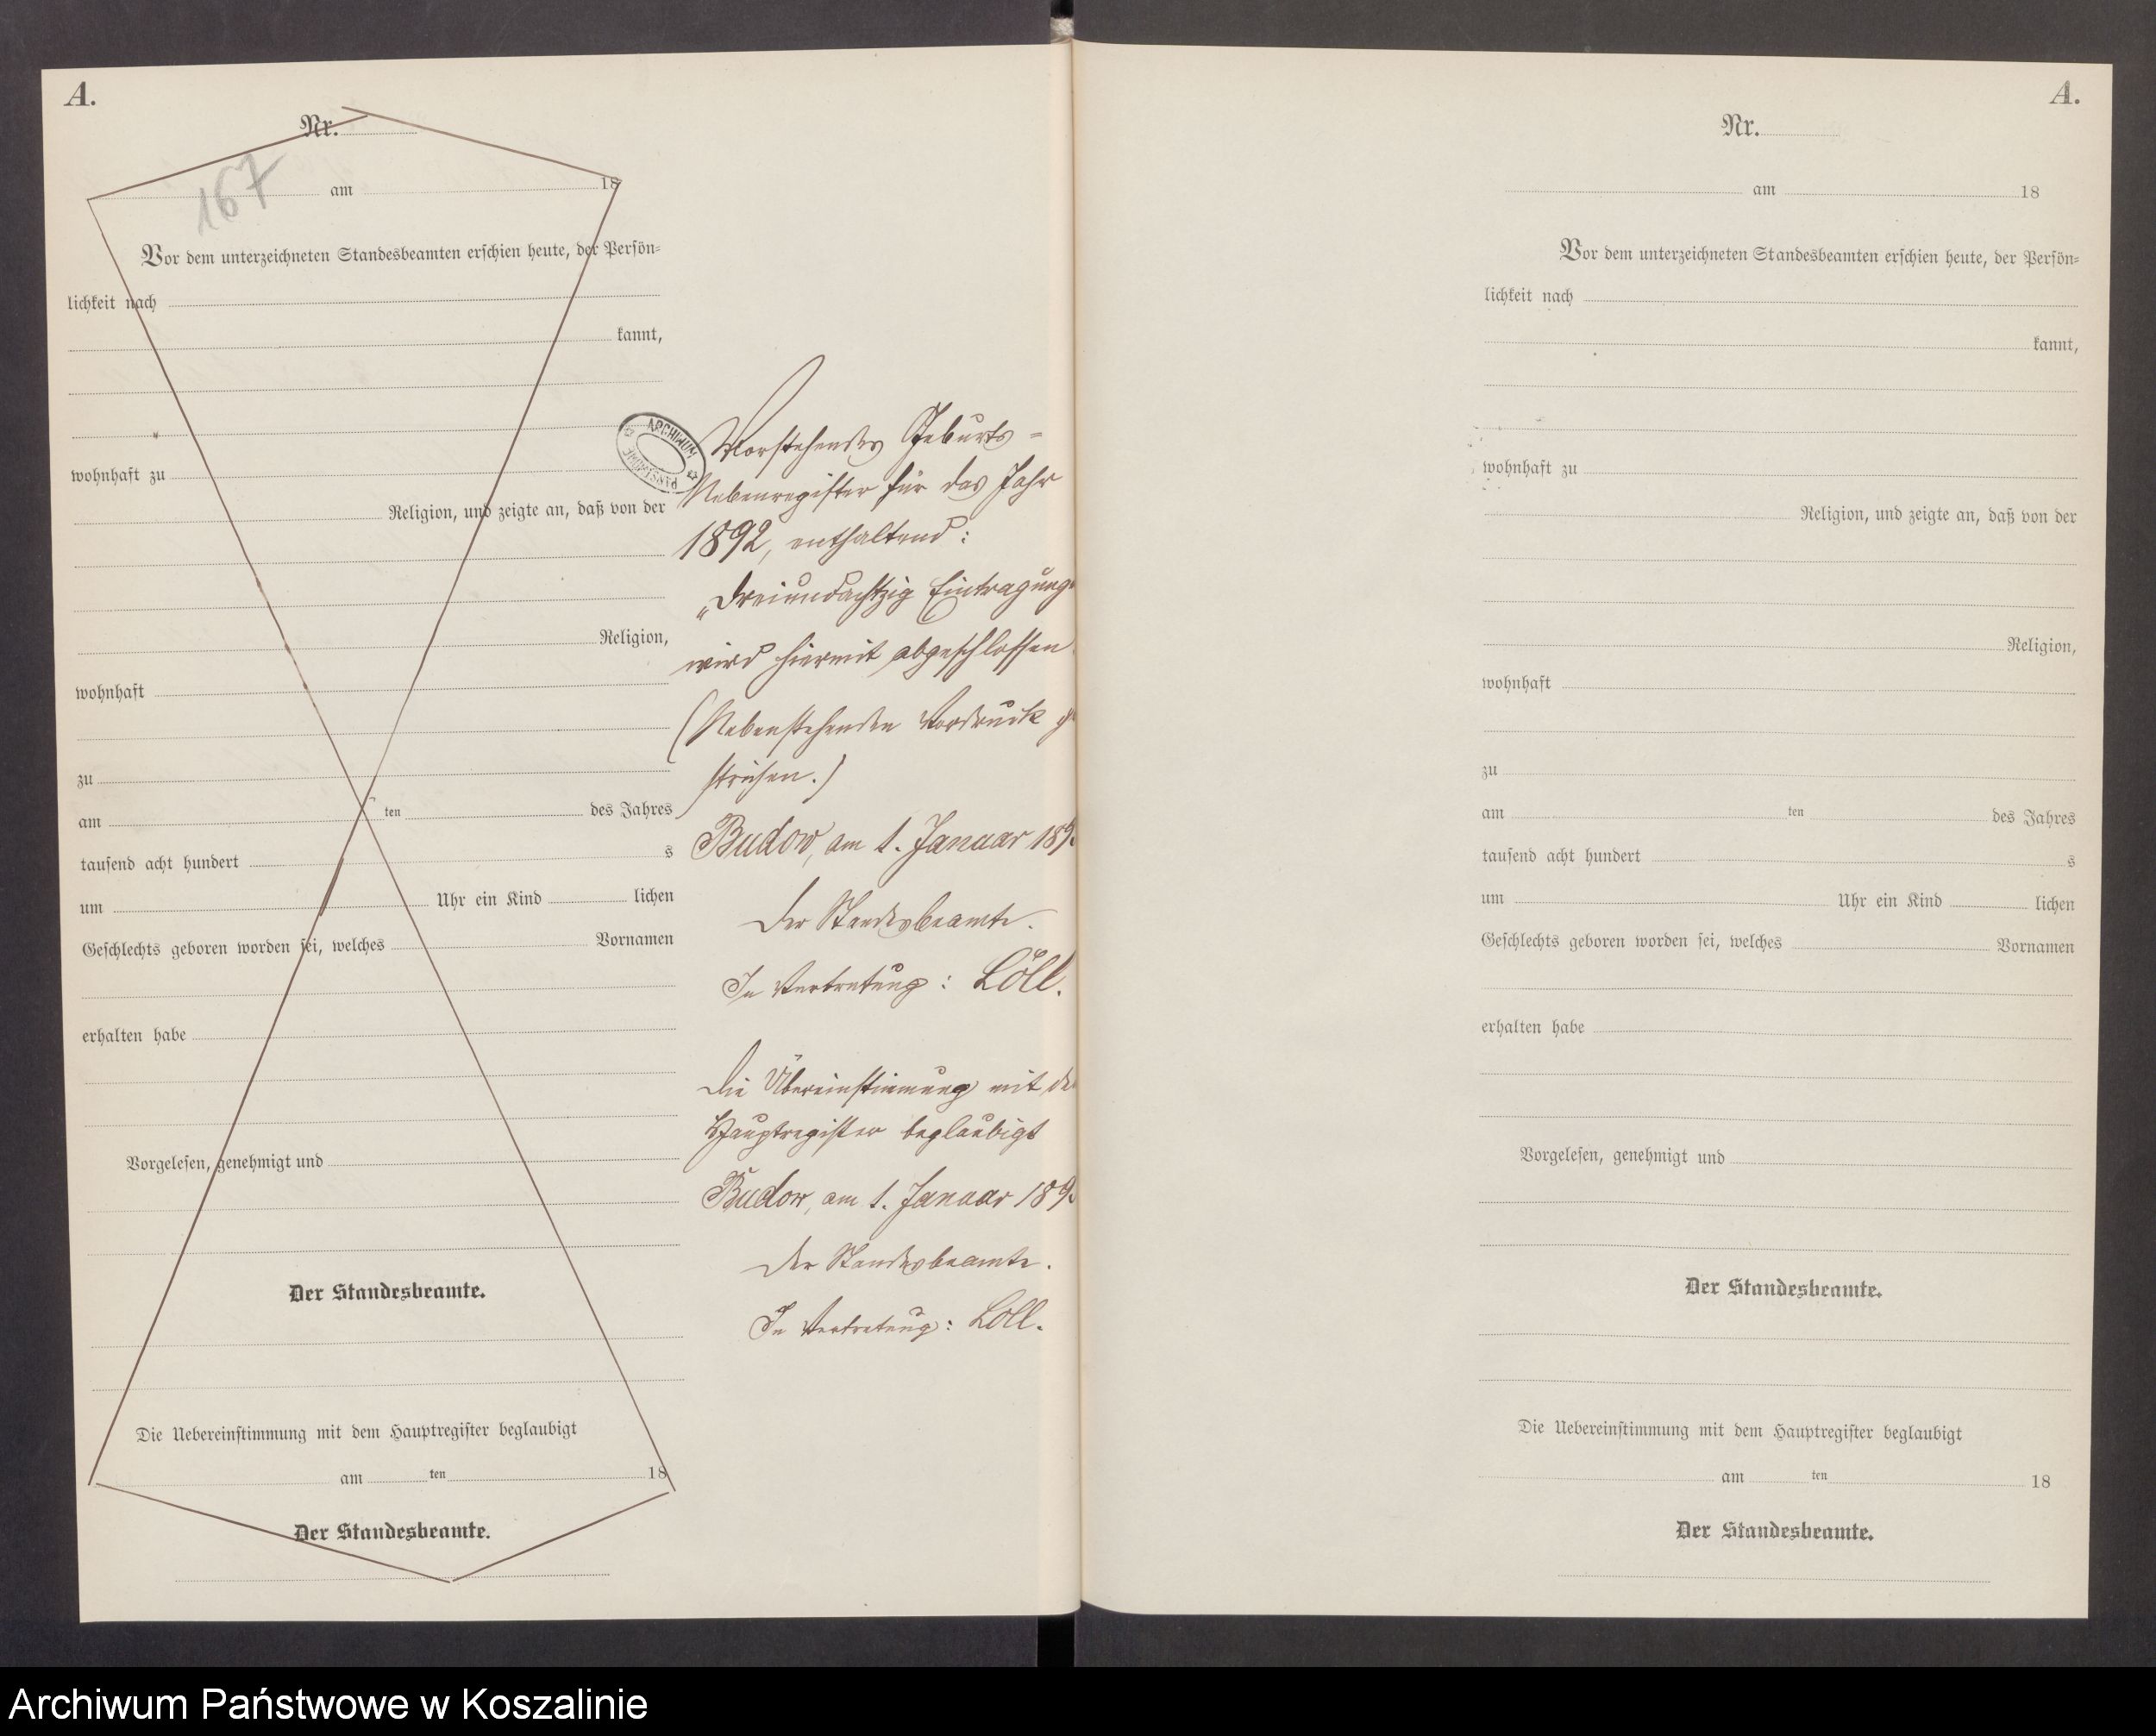 A.
Nr.
167
am 18
Vor dem unterzeichneten Standesbeamten erschien heute, der Persön-
lichkeit nach
kannt,
wohnhaft zu
Religion, und zeigte an, daß von der
Religion,
wohnhaft
zu
am ten des Jahres
tausend acht hundert s
um Uhr ein Kind lichen
Geschlechts geboren worden sei, welches Vornamen
erhalten habe
Vorgelesen, genehmigt und
Der Standesbeamte.
Die Uebereinstimmung mit dem Hauptregister beglaubigt
am ten 18
Der Standesbeamte.
ARCHIWUM
PAŃSTWOWE
Vorstehendes Geburts-
Nebenregister für das Jahr
1892, enthaltend:
„Dreiundachtzig Eintragung
wird hiermit abgeschlossen
(Nebenstehenden Vordruck ge
strichen.)
Budow, am 1. Januar 189
Der Standesbeamte.
In Vertretung: Löll.
Die Übereinstimmung mit de
Hauptregister beglaubigt
Budow, am 1. Januar 189
Der Standesbeamte.
In Vertretung: Löll.
A.
Nr.
am 18
Vor dem unterzeichneten Standesbeamten erschien heute, der Persön-
lichkeit nach
kannt,
wohnhaft zu
Religion, und zeigte an, daß von der
Religion,
wohnhaft
zu
am ten des Jahres
tausend acht hundert s
um Uhr ein Kind lichen
Geschlechts geboren worden sei, welches Vornamen
erhalten habe
Vorgelesen, genehmigt und
Der Standesbeamte.
Die Uebereinstimmung mit dem Hauptregister beglaubigt
am ten 18
Der Standesbeamte.
Archiwum Państwowe w Koszalinie